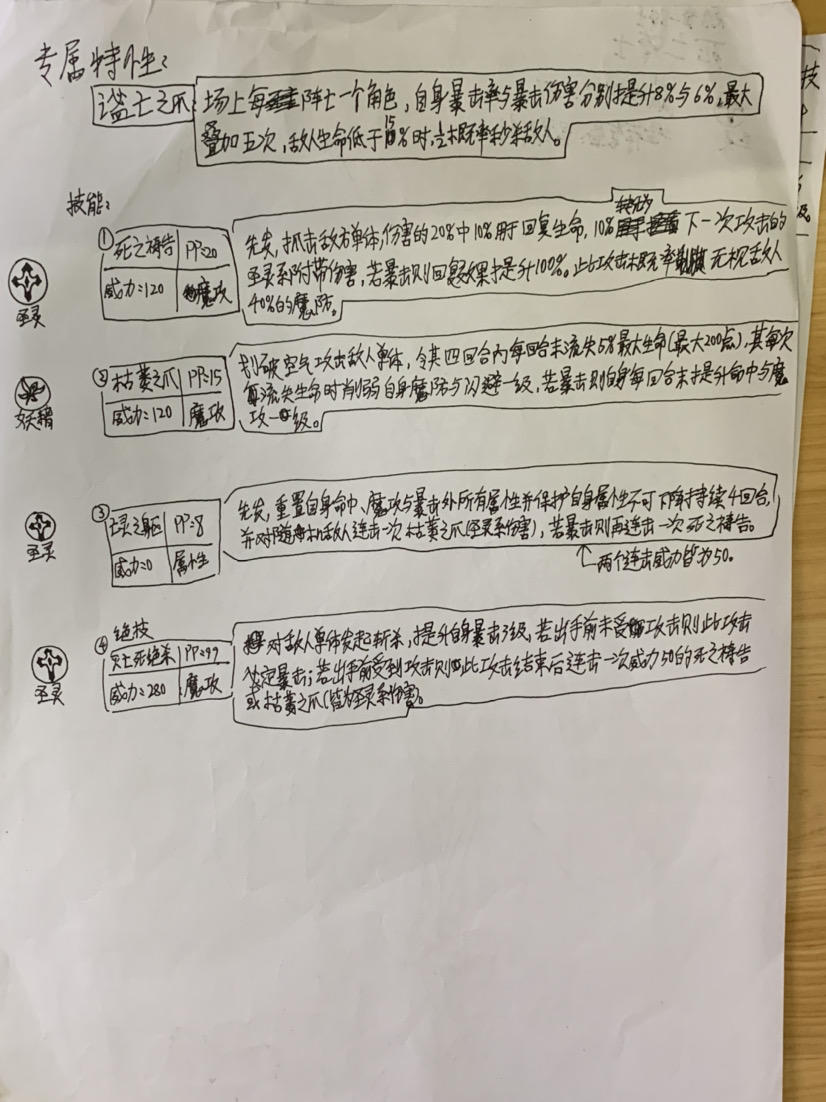 专属特性:
溢亡之爪:
场上每阵亡一个角色,自身暴击率与暴击伤害分别提升8%与6%,最大
叠加五次,敌人生命低于15%时,立概率秒杀敌人。
技能:
①死之祷告 PP=20
威力=120 魔攻
圣灵
先发,抓击敌方单体,伤害的20%中10%用于回复生命,10%转死为下一次攻击的
圣灵系附带伤害,若暴击则回复效果提升100%。此攻击概率无视敌人
40%的魔防。
②枯萎之爪 PP=15
威力=120 魔攻
妖精
划破空气攻击敌人单体,令其四回合内每回合末流失5%最大生命(最大200点),其每次
流失生命时削弱自身魔防与闪避一级,若暴击则自身每回合末提升命中与魔
攻一级。
③灵之躯 PP=8
威力=0 属性
圣灵
先发,重置自身命中、魔攻与暴击外所有属性并保护自身属性不可下降持续4回合,
并对随机敌人连击一次枯萎之爪(圣灵系伤害),若暴击则再连击一次死之祷告。
两个连击威力皆为50。
绝技
④冥亡死绝杀 PP=99
威力=280 魔攻
圣灵
对敌人单体发起斩杀,提升自身暴击3级,若出手前未受攻击则此攻击
必定暴击;若出手前受到攻击则此攻击结束后连击一次威力50的死之祷告
或枯萎之爪(皆为圣灵系伤害)。
技
级。